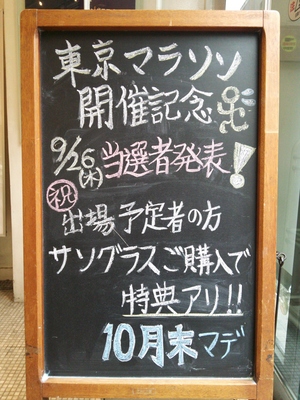 東京マラソン
開催記念
9/26(木)当選者発表!
祝 出場予定者の方
サングラスご購入で
特典アリ!!
10月末マデ